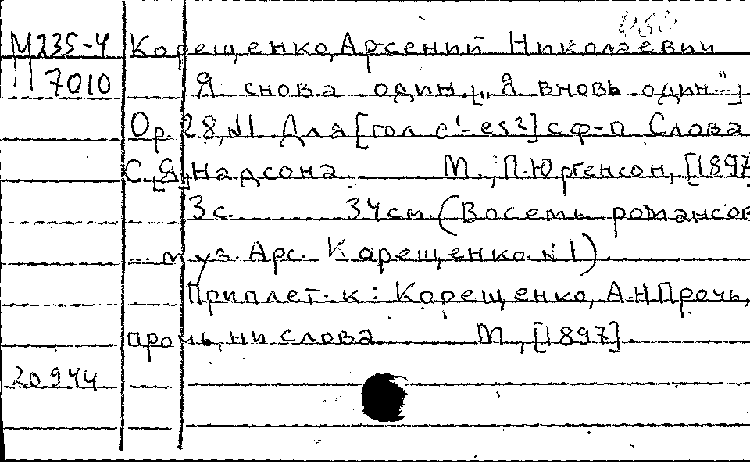 М235-4 Корещенко, Арсений Николаевич
7010 Я снова один. [„Я вновь один"]
Ор. 28, №1. Для [гол. c¹-es²] с ф-п. Слова
С. [Я.] Надсона М., П. Юргенсон, [1897
3 с. 34 см. (Восемь романсов
муз. Арс. Корещенко. №1)
Приплет. к: Корещенко, А.Н. Прочь,
прочь, ни слова М., [1897].
20944